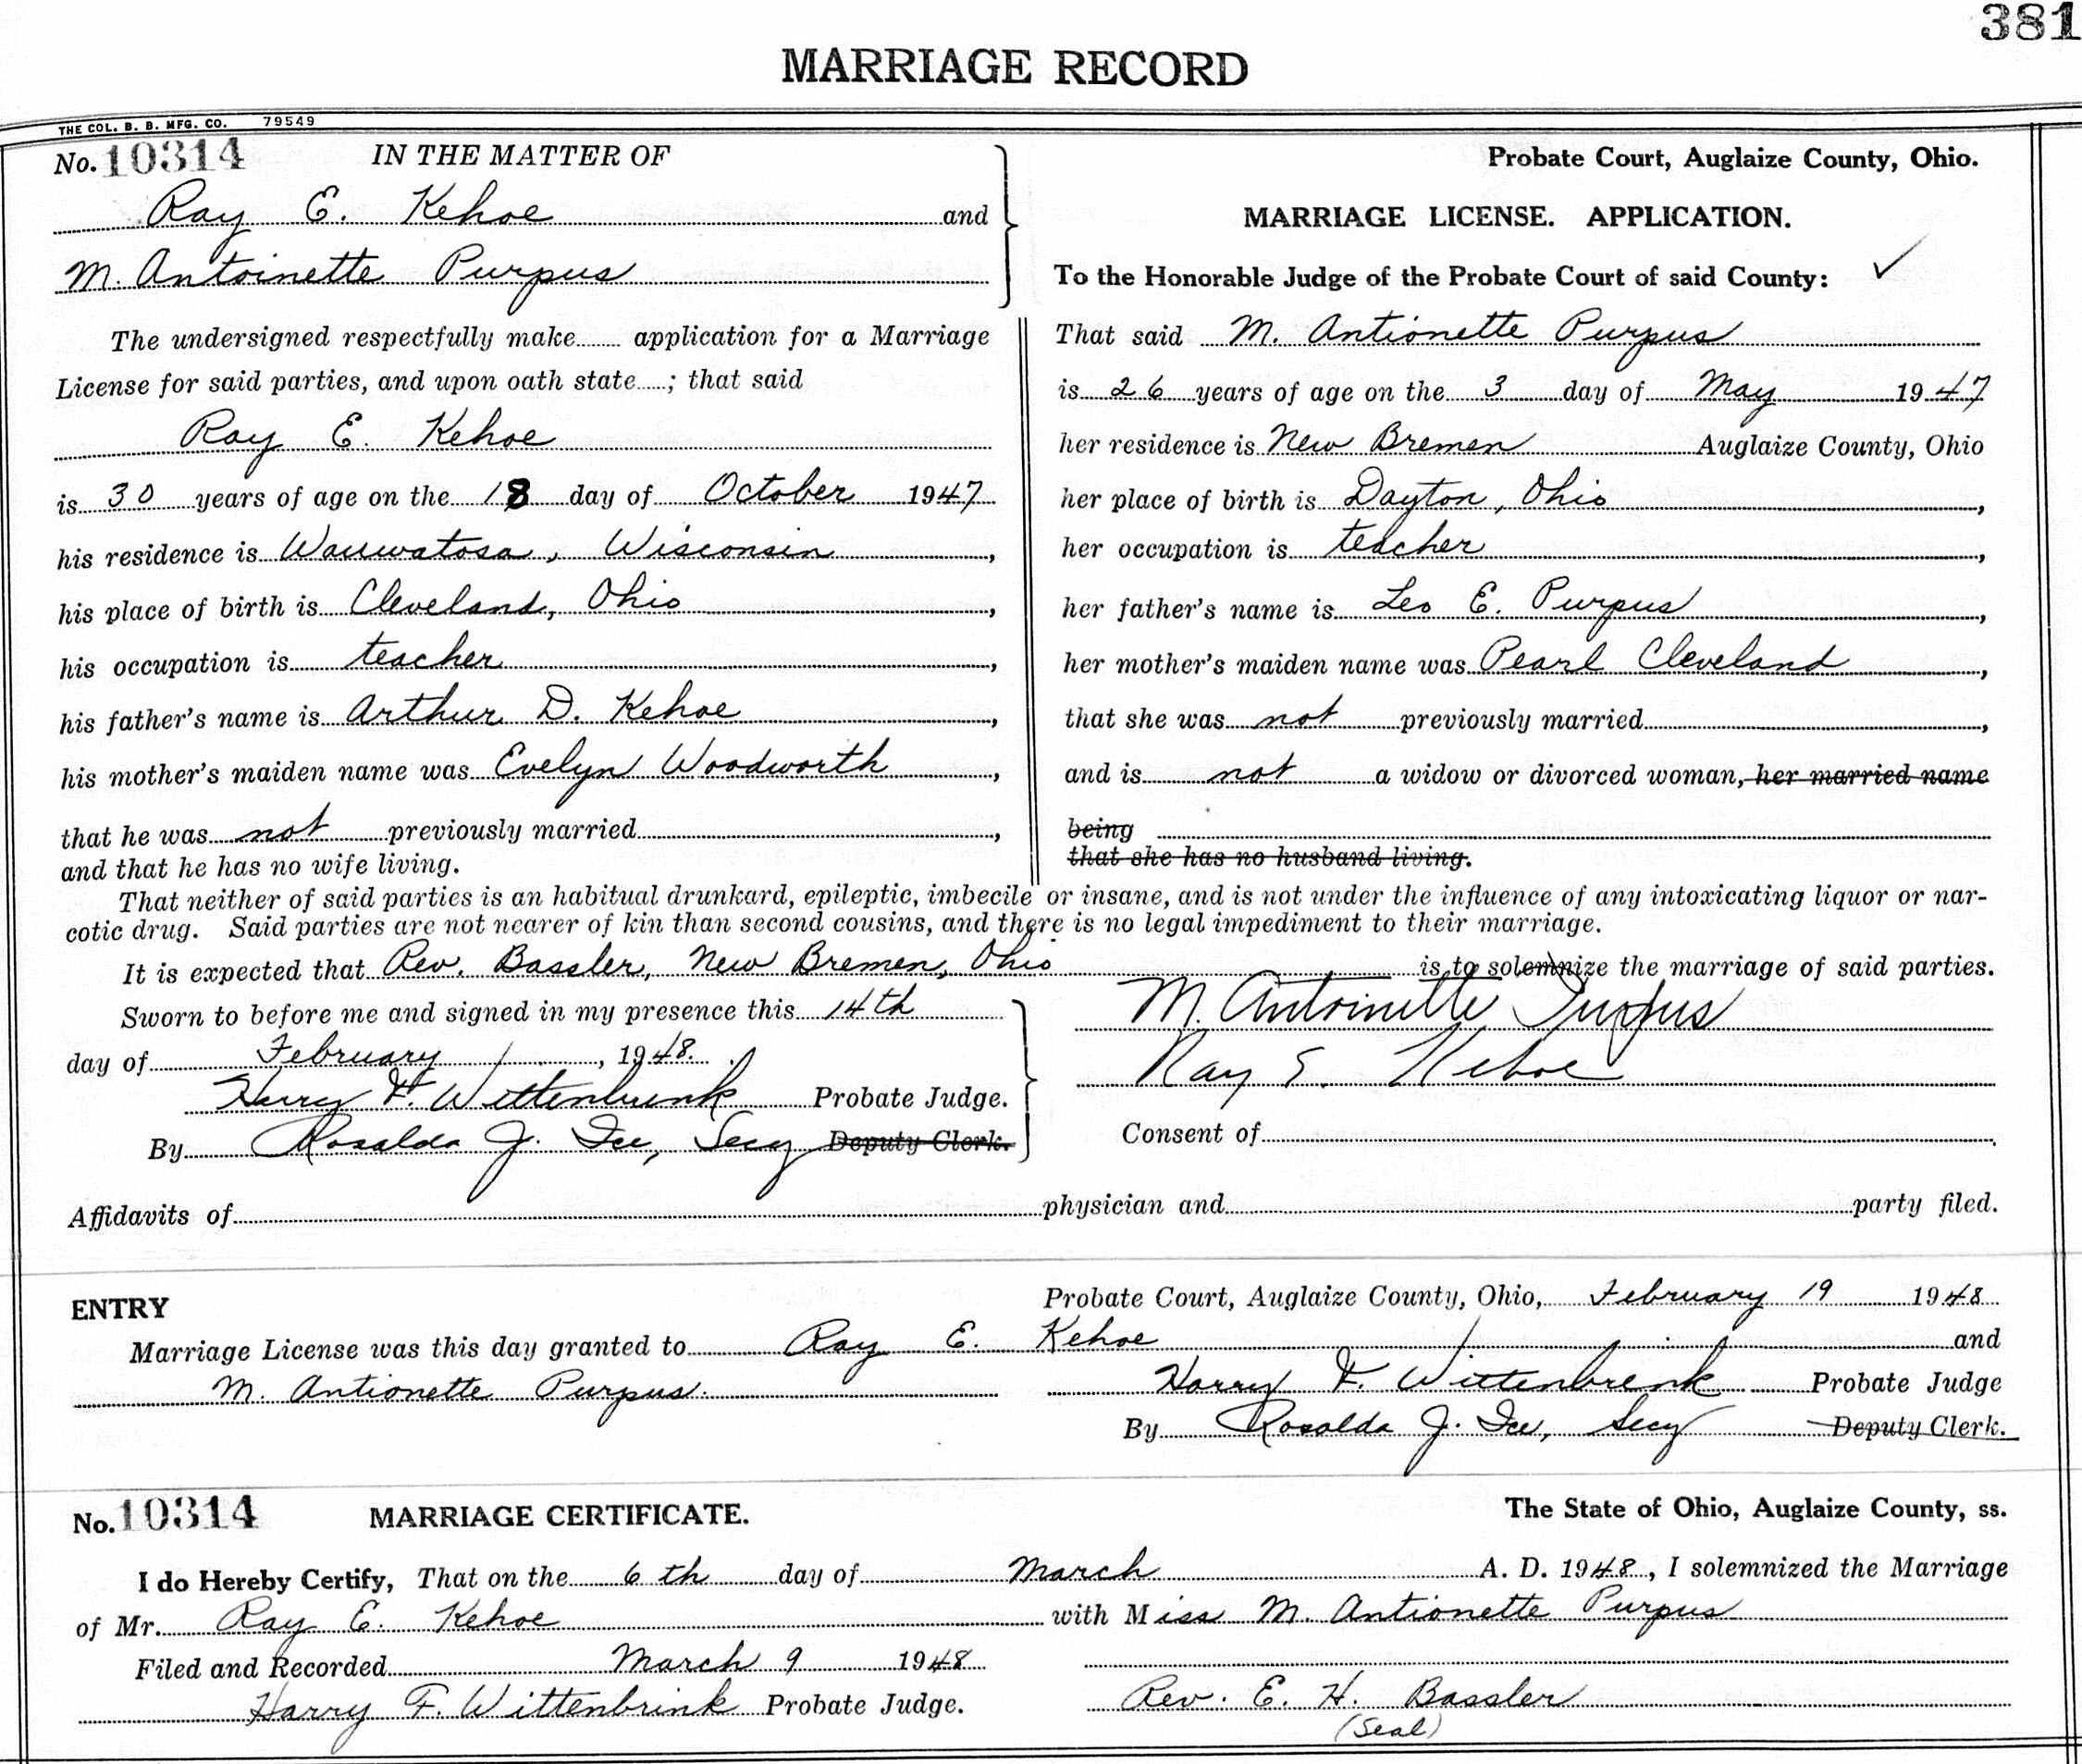 381
MARRIAGE RECORD
THE COL. B. B. MFG. CO. 79549
No. 10314 IN THE MATTER OF
Ray E. Kehoe and
M. Antoinette Purpus
The undersigned respectfully make application for a Marriage
License for said parties, and upon oath state ; that said
Ray E. Kehoe
is 30 years of age on the 18 day of October 1947
his residence is Wauwatosa, Wisconsin,
his place of birth is Cleveland, Ohio,
his occupation is teacher,
his father's name is Arthur D. Kehoe,
his mother's maiden name was Evelyn Woodworth,
that he was not previously married,
and that he has no wife living.
Probate Court, Auglaize County, Ohio.
MARRIAGE LICENSE. APPLICATION.
To the Honorable Judge of the Probate Court of said County: ✓
That said M. Antionette Purpus
is 26 years of age on the 3 day of May 1947
her residence is New Bremen Auglaize County, Ohio
her place of birth is Dayton, Ohio,
her occupation is teacher,
her father's name is Leo E. Purpus,
her mother's maiden name was Pearl Cleveland,
that she was not previously married,
and is not a widow or divorced woman, her married name
being
that she has no husband living.
That neither of said parties is an habitual drunkard, epileptic, imbecile or insane, and is not under the influence of any intoxicating liquor or nar-
cotic drug. Said parties are not nearer of kin than second cousins, and there is no legal impediment to their marriage.
It is expected that Rev. Bassler, New Bremen, Ohio is to solemnize the marriage of said parties.
Sworn to before me and signed in my presence this 14th
day of February, 1948.
Harry F. Wittenbrink Probate Judge.
By Rosalda J. Ice, Secy Deputy Clerk.
M. Antoinette Purpus
Ray E. Kehoe
Consent of
Affidavits of physician and party filed.
ENTRY Probate Court, Auglaize County, Ohio, February 19 1948
Marriage License was this day granted to Ray E. Kehoe and
M. Antionette Purpus.
Harry F. Wittenbrink Probate Judge
By Rosalda J. Ice, Secy Deputy Clerk.
No. 10314 MARRIAGE CERTIFICATE. The State of Ohio, Auglaize County, ss.
I do Hereby Certify, That on the 6th day of March A. D. 1948, I solemnized the Marriage
of Mr. Ray E. Kehoe with Miss M. Antionette Purpus
Filed and Recorded March 9 1948
Harry F. Wittenbrink Probate Judge. Rev. E. H. Bassler
(Seal)